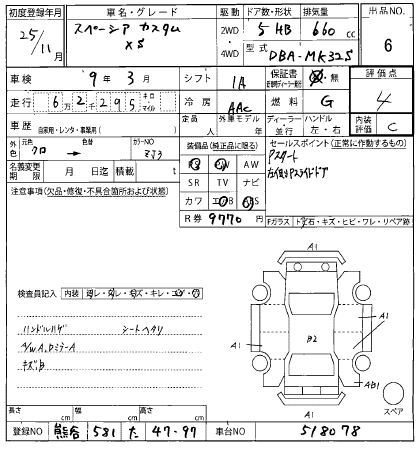 初度登録年月 車名・グレード 駆動 ドア数・形状 排気量 出品NO
25/11月 スペーシア カスタム XS 2WD 4WD 5 HB 660 cc 6
型式 DBA-MK32S
車検 9年 3月 シフト IA 保証書 無 評価点
走行 62,295 キロ・マイル 冷房 AAC 燃料 G 4
車歴 自家用・レンタ・事業用( ) 定員 人 外車モデル 年 ディーラー・並行 ハンドル 左・右 内装評価 C
外色 元色 クロ 色替 カラーNO ZJ3
装備品(純正品に限る) セールスポイント(正常に作動するもの)
名義変更期限 月 日迄 積載 t
PS PW AW
SR TV ナビ
カワ エアB ABS
Pスタート
注意事項(欠品・修復・不具合箇所および状態)
R券 9770円
Fガラス ト石・キズ・ヒビ・ワレ・リペア跡
検査員記入 内装
ハンドルハゲ シートヘタリ
A/W A,Dミラー A
キズ,B
A1
A1
B2
A1
AB1
A1
スペア
長さ cm 幅 cm 高さ cm
登録NO 熊谷 581 た 47-97 車台NO 518078